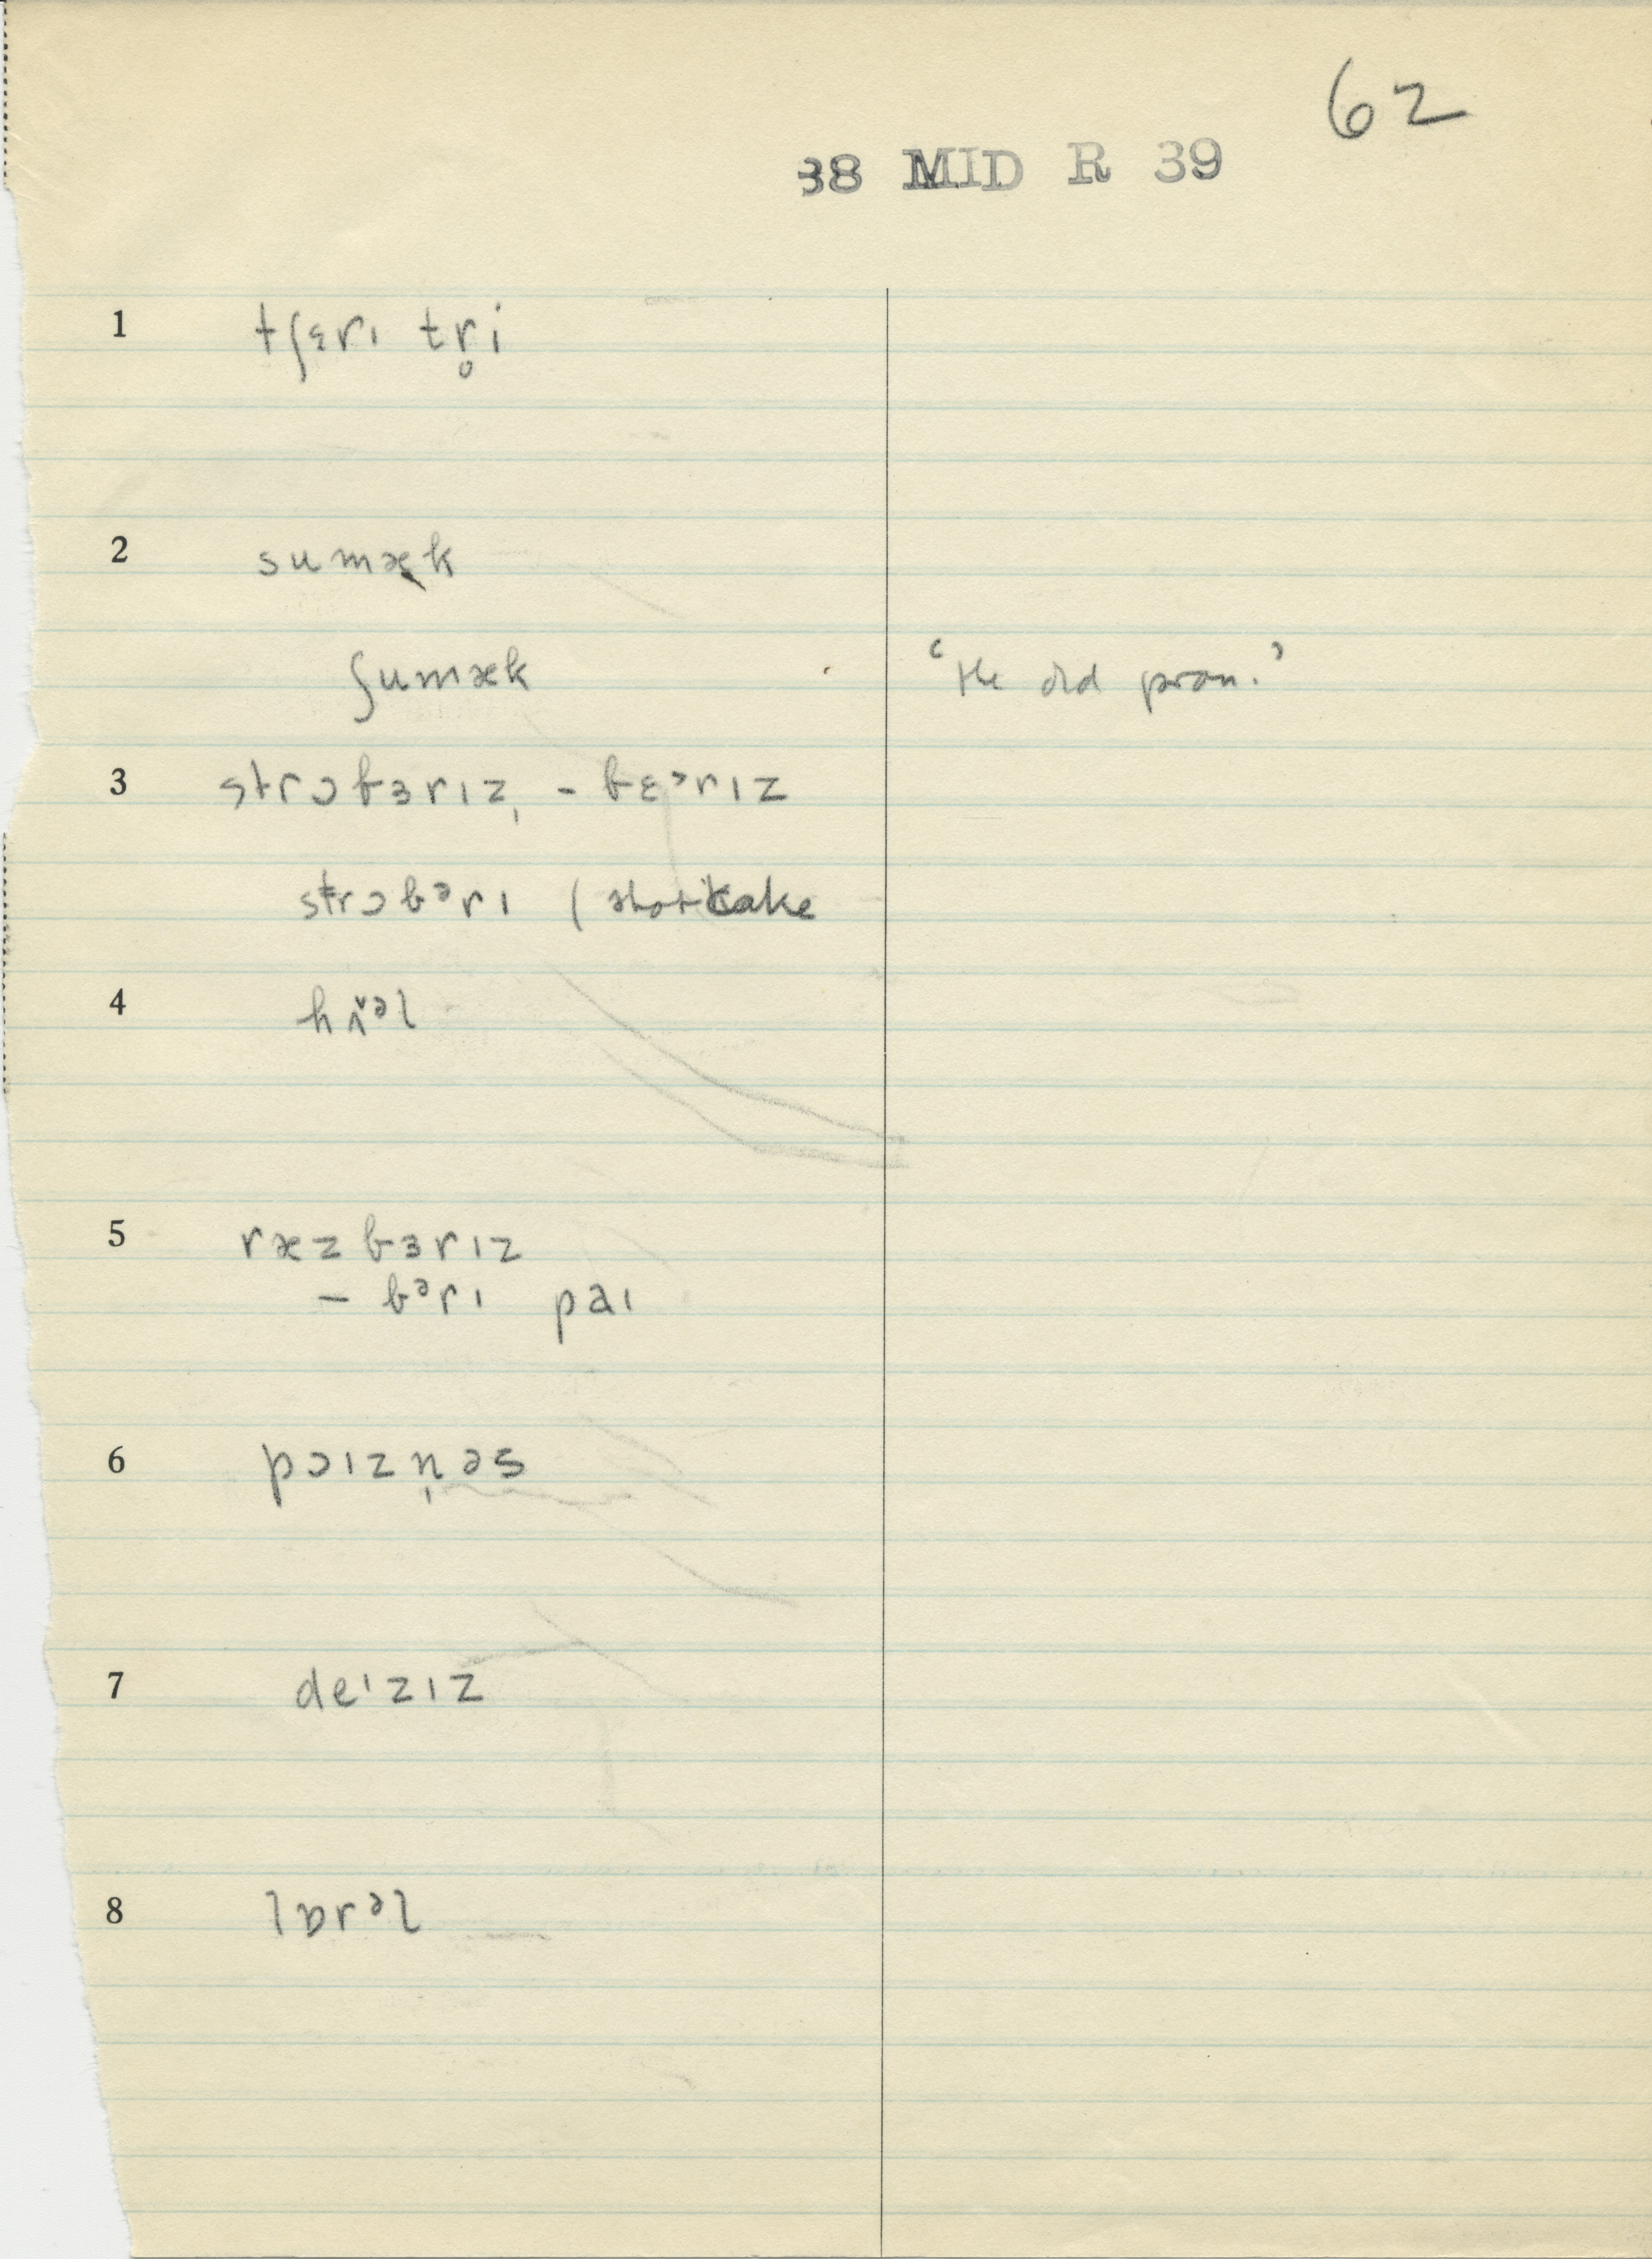 62
38 MID R 39
1 tʃɛrɪ tr̥i
2 sumæk
ʃumæk ‘the old pron.’
3 strɔbɜrɪz, - bɛᵊrɪz
strɔbᵊrɪ (shortcake
4 hʌ̌ᵊl
5 ræzbɜrɪz
- bᵊrɪ paɪ
6 pɔɪzn̩əs
7 deᶦzɪz
8 lɒrᵊl